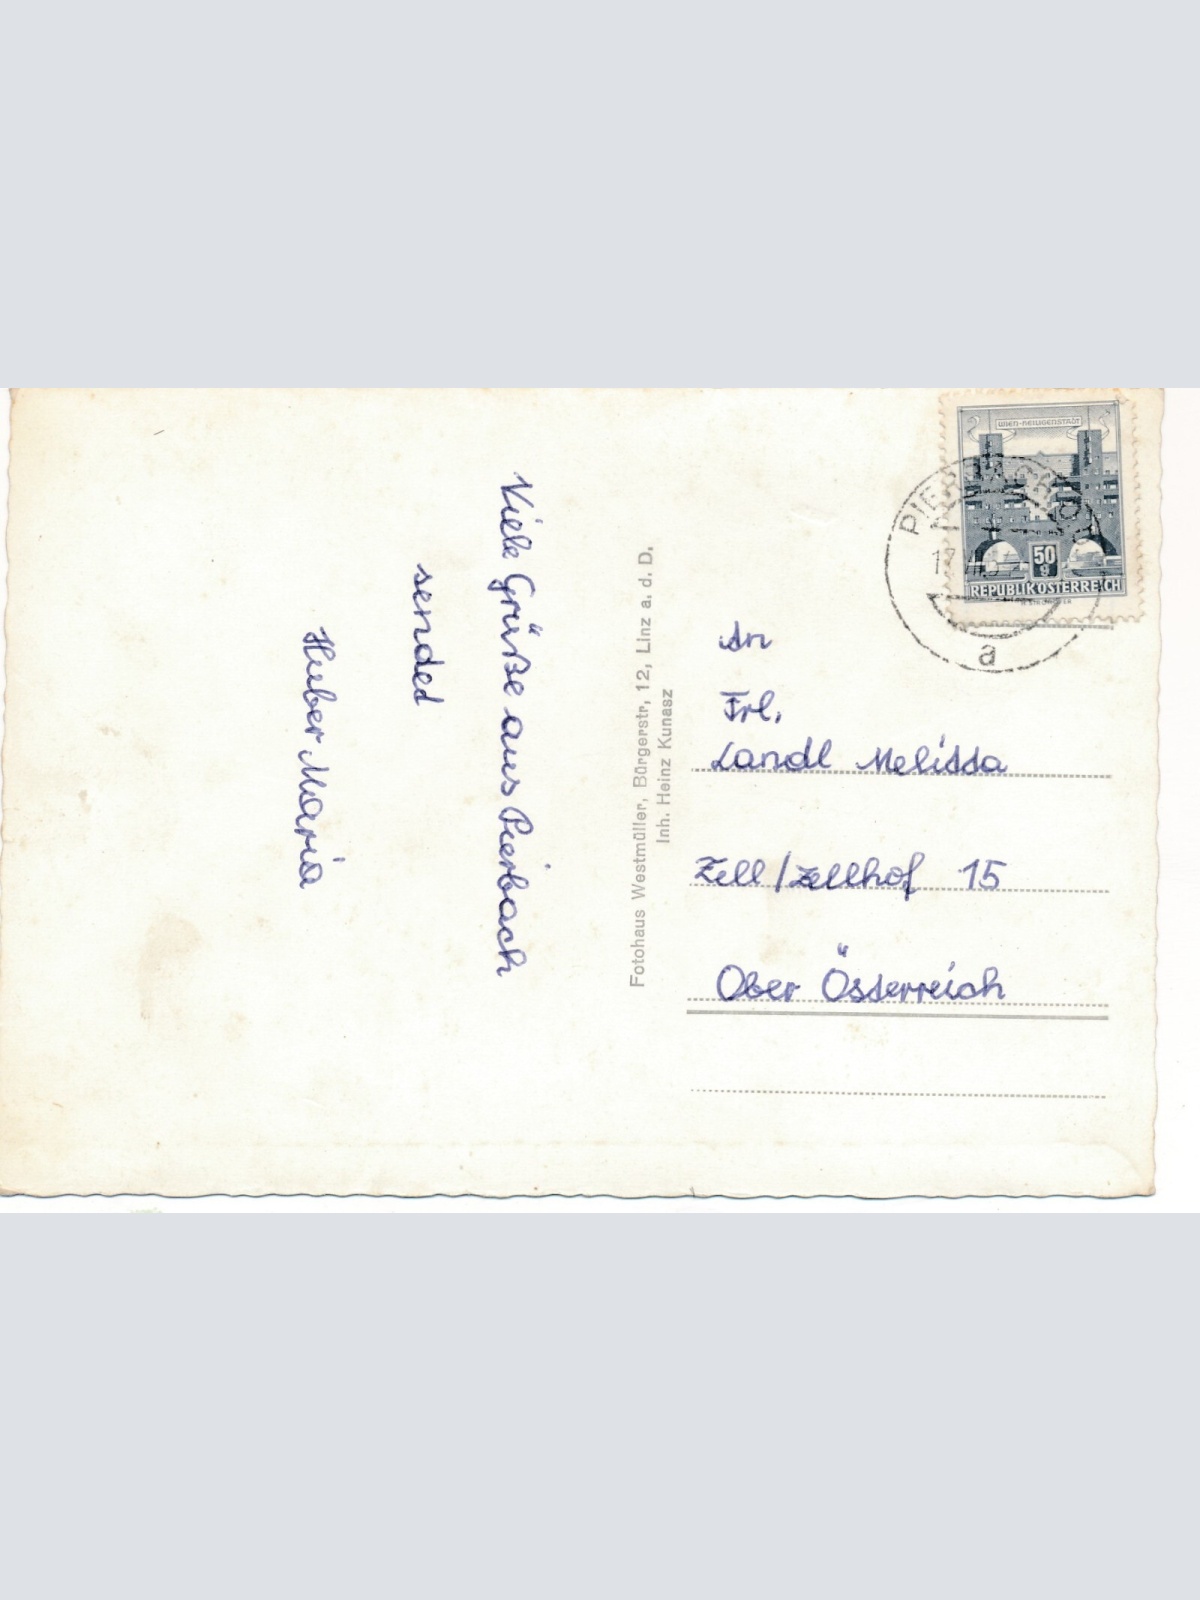 Viele Grüße aus Pierbach
sended
Huber Maria
Fotohaus Westmüller, Bürgerstr, 12, Linz a. d. D.
Inh. Heinz Kunasz
WIEN-HEILIGENSTADT
50
g
REPUBLIK ÖSTERREICH
a
An
Frl.
Landl Melissa
Zell/Zellhof 15
Ober Österreich